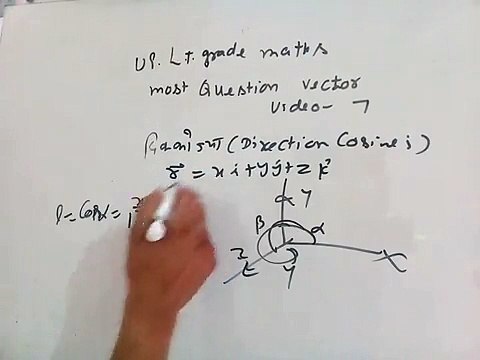 UP. Lt. grade maths
most Question vector
video- 7
(Direction Cosines)
r⃗ = x i + y j + z k̂
l = Cosα = x
Y
β
α
Z
γ
X